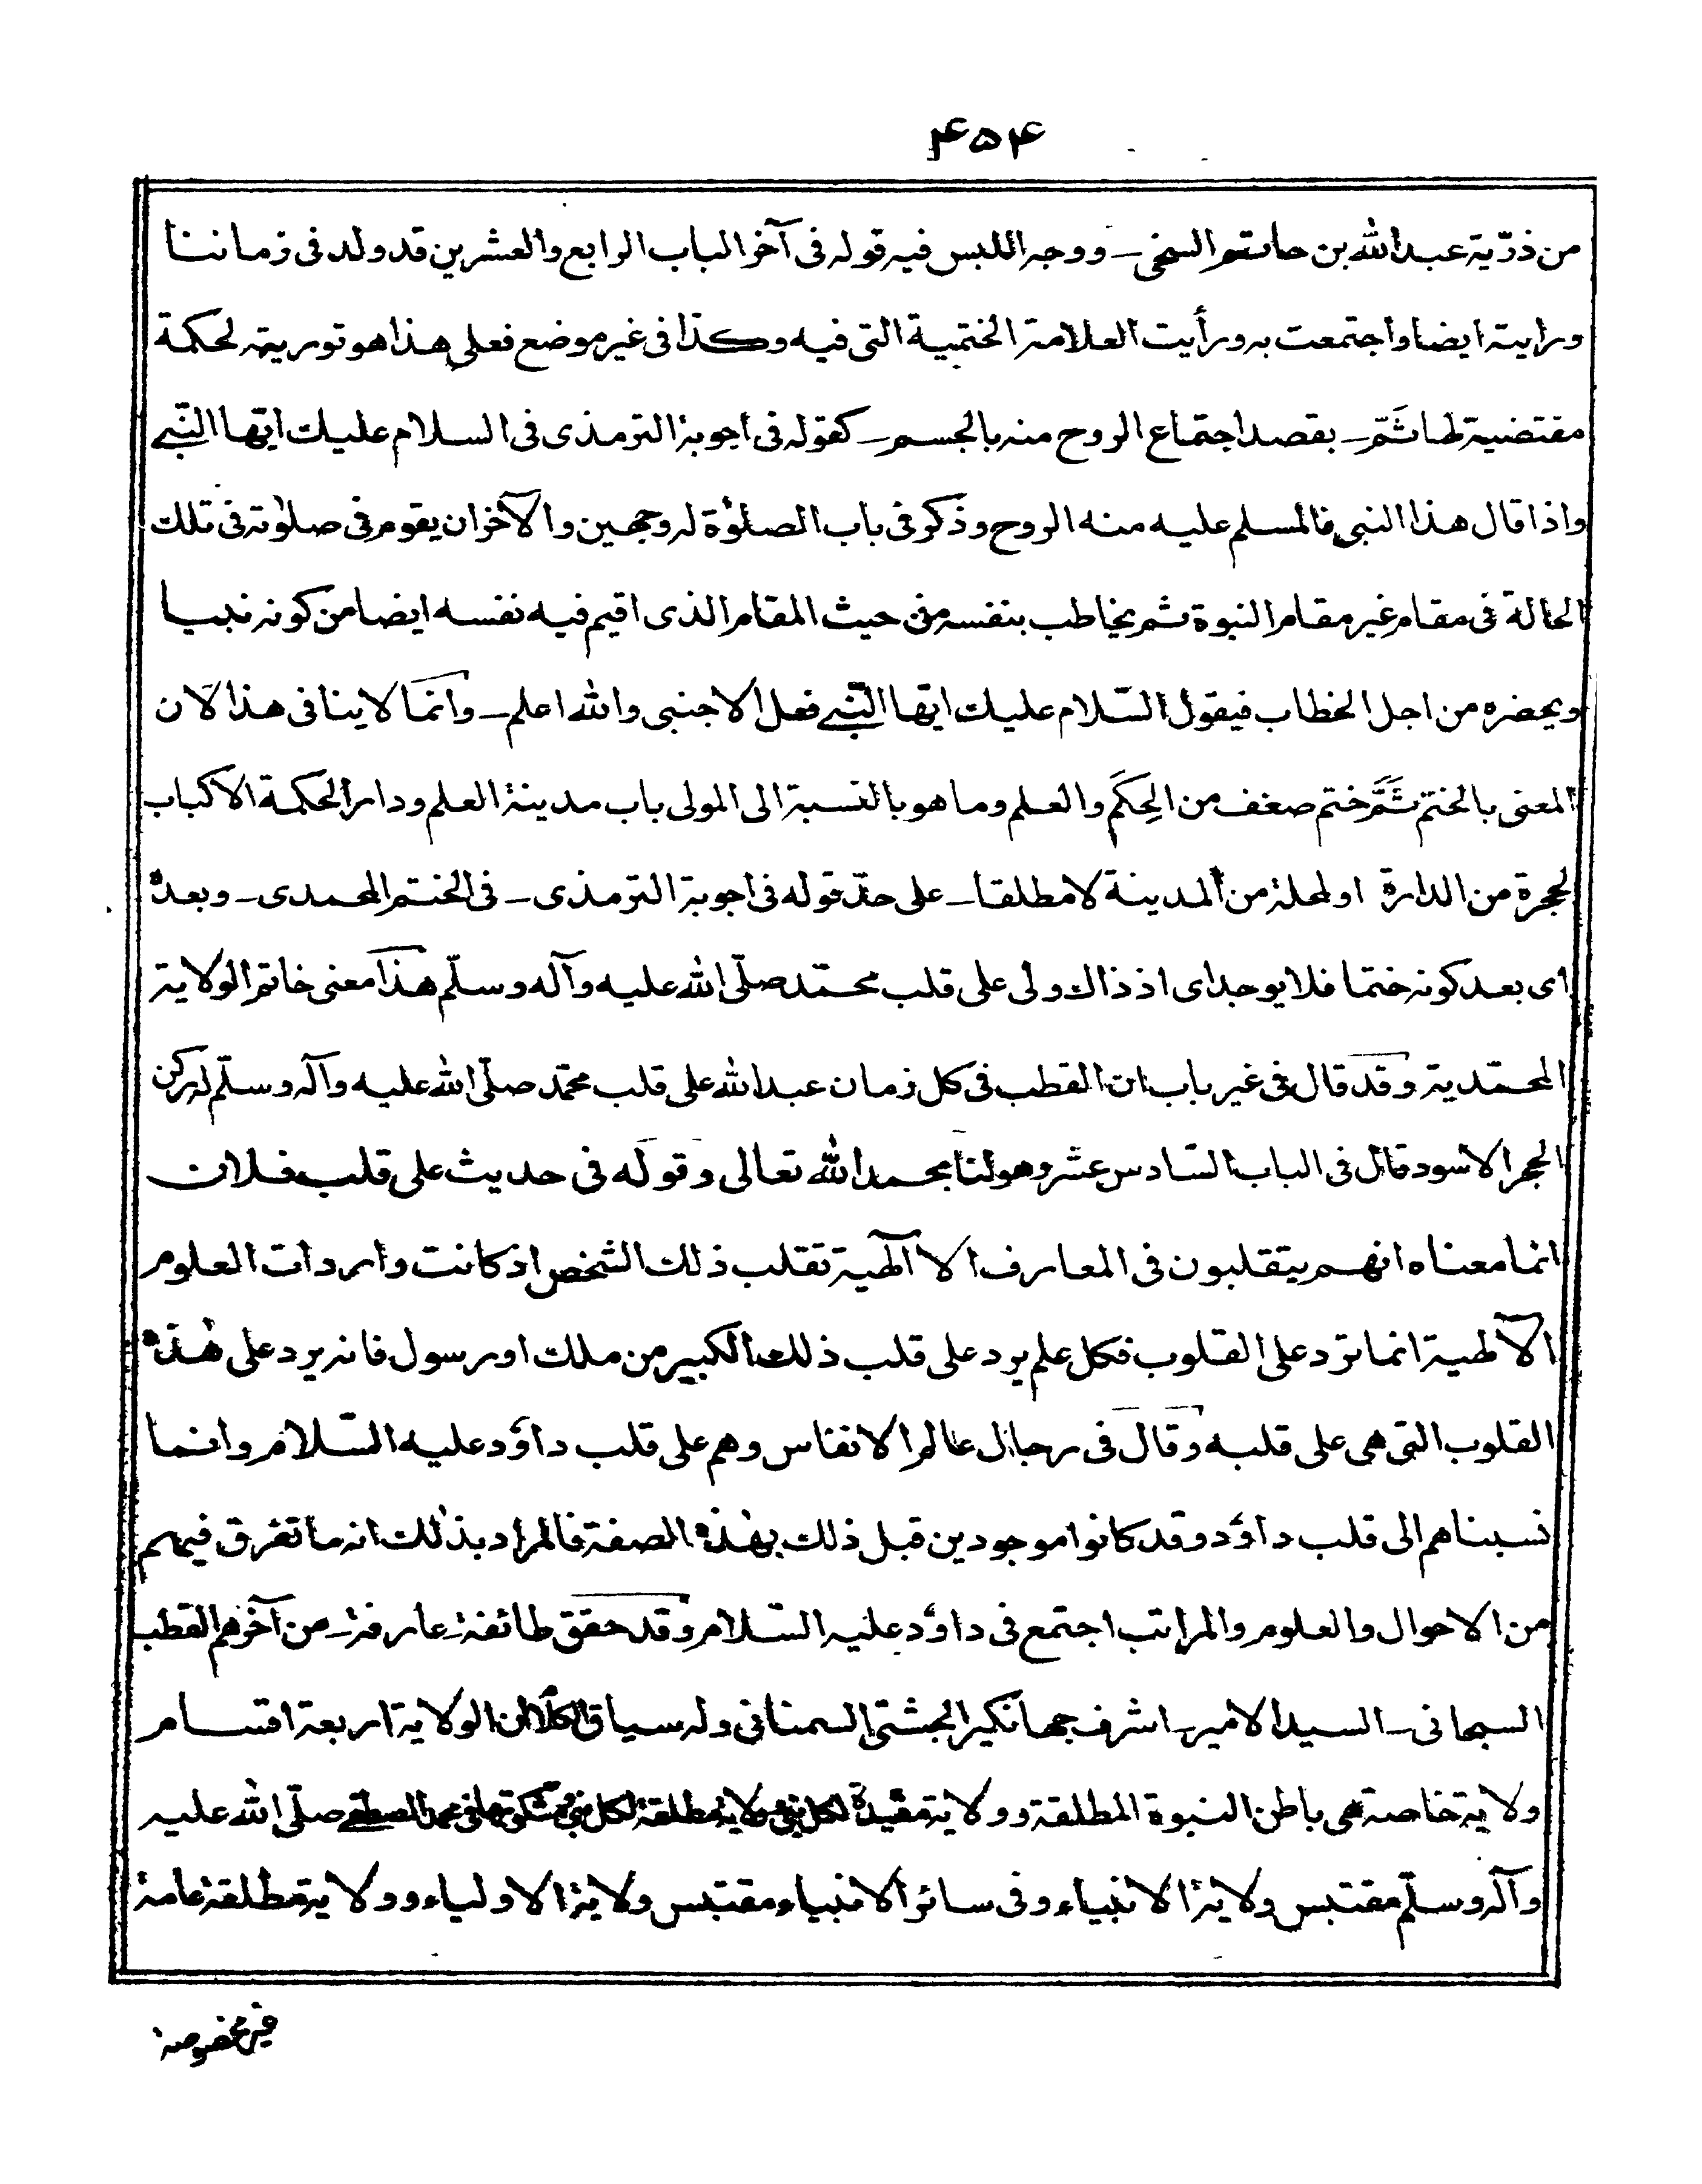 ۴۵۴
من ذرّية عبد الله بن حاتم السخى ـ ووجه اللبس فيه قوله فى آخر الباب الرابع والعشرين قد ولد فى زماننا
ورايته ايضا واجتمعت به ورأيت العلامة الختمية التى فيه وكذا فى غير موضع فعلى هذا هو تورية لحكمة
مقتضية لها ثَمّ ـ بقصد اجتماع الروح منه بالجسم ـ كقوله فى اجوبة الترمذى فى السلام عليك ايّها النّبي
واذا قال هذا النبى فالمسلم عليه منه الروح وذكر فى باب الصلوٰة له وجهين والآخر ان يقوم فى صلوٰته فى تلك
الحالة فى مقام غير مقام النبوة ثم يخاطب بنفسه من حيث المقام الذى اقيم فيه نفسه ايضا من كونه نبيا
ويحضره من اجل الخطاب فيقول السّلام عليك ايّها النّبي فعل الاجنبى والله اعلم ـ وانّما لا ينافى هذا لان
المعنى بالختم ثَمَّ ختم صغف من الحِكَم والعلم وما هو بالنسبة الى المولى باب مدينة العلم ودار الحكمة الا كباب
لحجرة من الدارة او لمحلة من المدينة لا مطلقا ـ على حدّ قوله فى اجوبة الترمذى ـ فى الختم المحمدى ـ وبعدهٗ
اى بعد كونه ختما فلا يوجد اى اذ ذاك ولى على قلب محمّد صلّى الله عليه وآله وسلّم هذا معنى خاتم الولاية
المحمّدية وقد قال فى غير باب ان القطب فى كل زمان عبد الله على قلب محمّد صلّى الله عليه وآله وسلّم له ركن
الحجر الاسود قال فى الباب السّادس عشر وهو لنا بحمد الله تعالى وقوله فى حديث على قلب فلان
انما معناه انهم يتقلبون فى المعارف الا آلٰهية تقلب ذلك الشخص اذ كانت واردات العلوم
الآلٰهية انما ترد على القلوب فكل علم يرد على قلب ذلك الكبير من ملك او رسول فانه يرد على هٰذه
القلوب التى هى على قلبه وقال فى رجال عالم الانفاس وهم على قلب داوٗد عليه السّلام وانما
نسبناهم الى قلب داوٗد وقد كانوا موجودين قبل ذلك بهٰذه الصفة فالمراد بذٰلك انه ما تفرق فيهم
من الاحوال والعلوم والمراتب اجتمع فى داوٗد عليه السّلام وقد حقق طائفة عارفة ـ من آخرهم القطب
السبحانى ـ السيد الامير ـ اشرف جهانگير الجشتى السمنانى وله سياق الكلام ان الولاية اربعة اقسام
ولاية خاصة هى باطن النبوة المطلقة وولاية مقيدة لكل نبى وولاية مطلقة لكل نبى صلّى الله عليه
وآله وسلّم مقتبس ولاية الانبياء وفى سائر الانبياء مقتبس ولاية الاولياء وولاية مطلقة عامة
غير مخصوصة